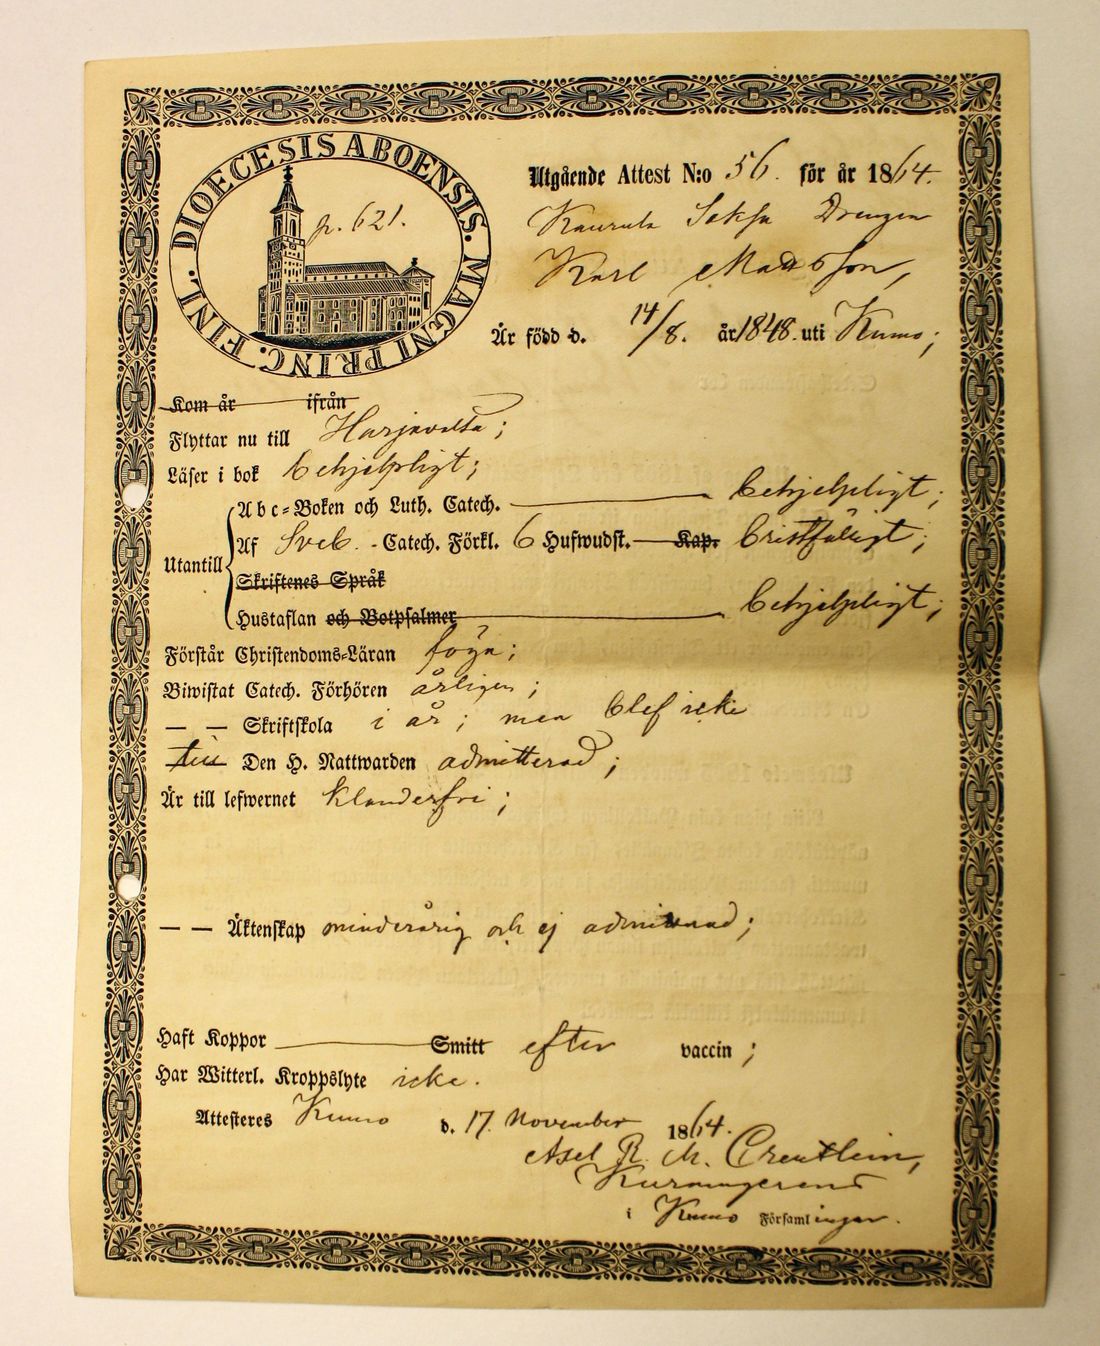 DIOECESIS ABOENSIS. MAGNI PRINC. FINL.
p. 621.
Utgående Attest N:o 56. för år 1864.
Drengen
Karl Matsson,
Är född d. 14/8. år 1848. uti Kumo;
Kom år ifrån
Flyttar nu till Harjavalta;
Läser i bok behjelpligt;
Abc-Boken och Luth. Catech. behjelpligt;
Utantill
Af Sveb. Catech. Förkl. 6 Hufwudst. Kap. bristfäligt;
Skriftenes Språk
Hustaflan och Botpsalmer behjelpligt;
Förstår Christendoms-Läran föga;
Biwistat Catech. Förhören årligen;
— — Skriftskola i år; men blef icke
Den H. Nattwarden admitterad;
Är till lefwernet klanderfri;
— — Äktenskap minderårig och ej admitterad;
Haft Koppor Smitt efter vaccin;
Har Witterl. Kroppslyte icke.
Attesteres Kumo d. 17. November 1864.
Axel R. M. Creutlein,
i Kumo Församlingar.